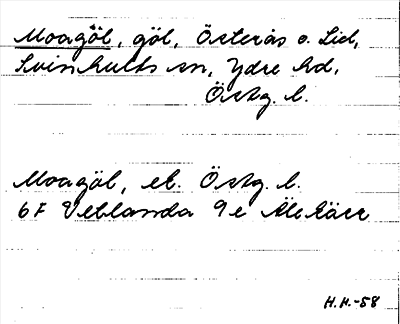 Moagöl, göl, Österås o. Lid,
Svinhults sn, Ydre hd,
Östg. l.
Moagöl, ek. Östg. l.
6F Vetlanda 9e Älekärr
H.H.-58